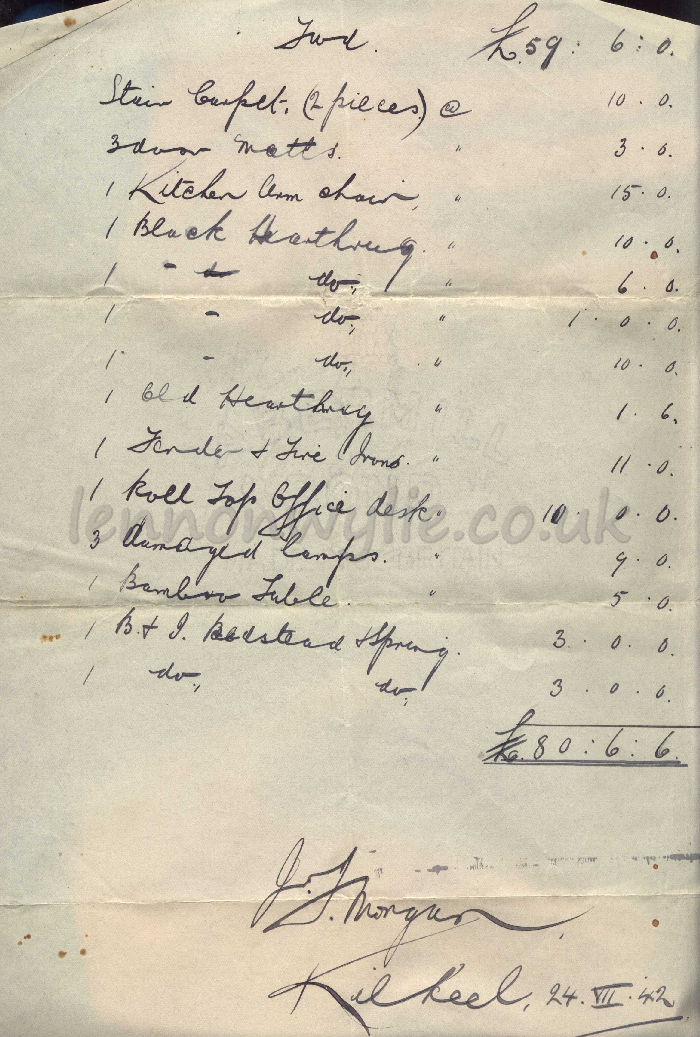 Fwd. £59 : 6 : 0.
Stair Carpet. (2 pieces) @ 10 . 0.
3 door Matts. " 3 . 0.
1 Kitchen Arm chair, " 15 . 0.
1 Black Hearthrug. " 10 . 0.
1 - do., " 6 . 0.
1 - do., " 1 . 0 . 0.
1 - do., " 10 . 0.
1 Old Hearthrug " 1 . 6.
1 Fender & Fire Irons. " 11 . 0.
1 Roll Top Office desk. 10 . 0 . 0.
lennonwylie.co.uk
3 damaged lamps. " 9 . 0.
1 Bamboo Table. " 5 . 0.
1 B. & I. Bedstead & Spring. 3 . 0 . 0.
1 do., do., 3 . 0 . 0.
£80 : 6 : 6.
Morgan
Kilkeel, 24.VII.42